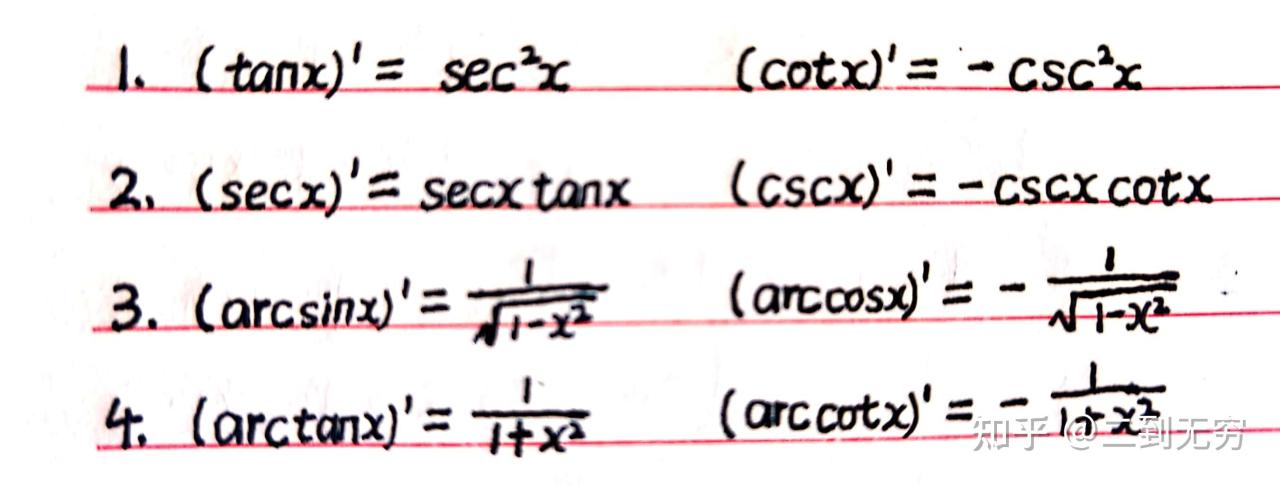 1. (tanx)' = sec²x (cotx)' = -csc²x
2. (secx)' = secx tanx (cscx)' = -cscx cotx
3. (arcsinx)' = 1/√(1-x²) (arccosx)' = -1/√(1-x²)
4. (arctanx)' = 1/(1+x²) (arccotx)' = -1/(1+x²)
知乎 @二到无穷